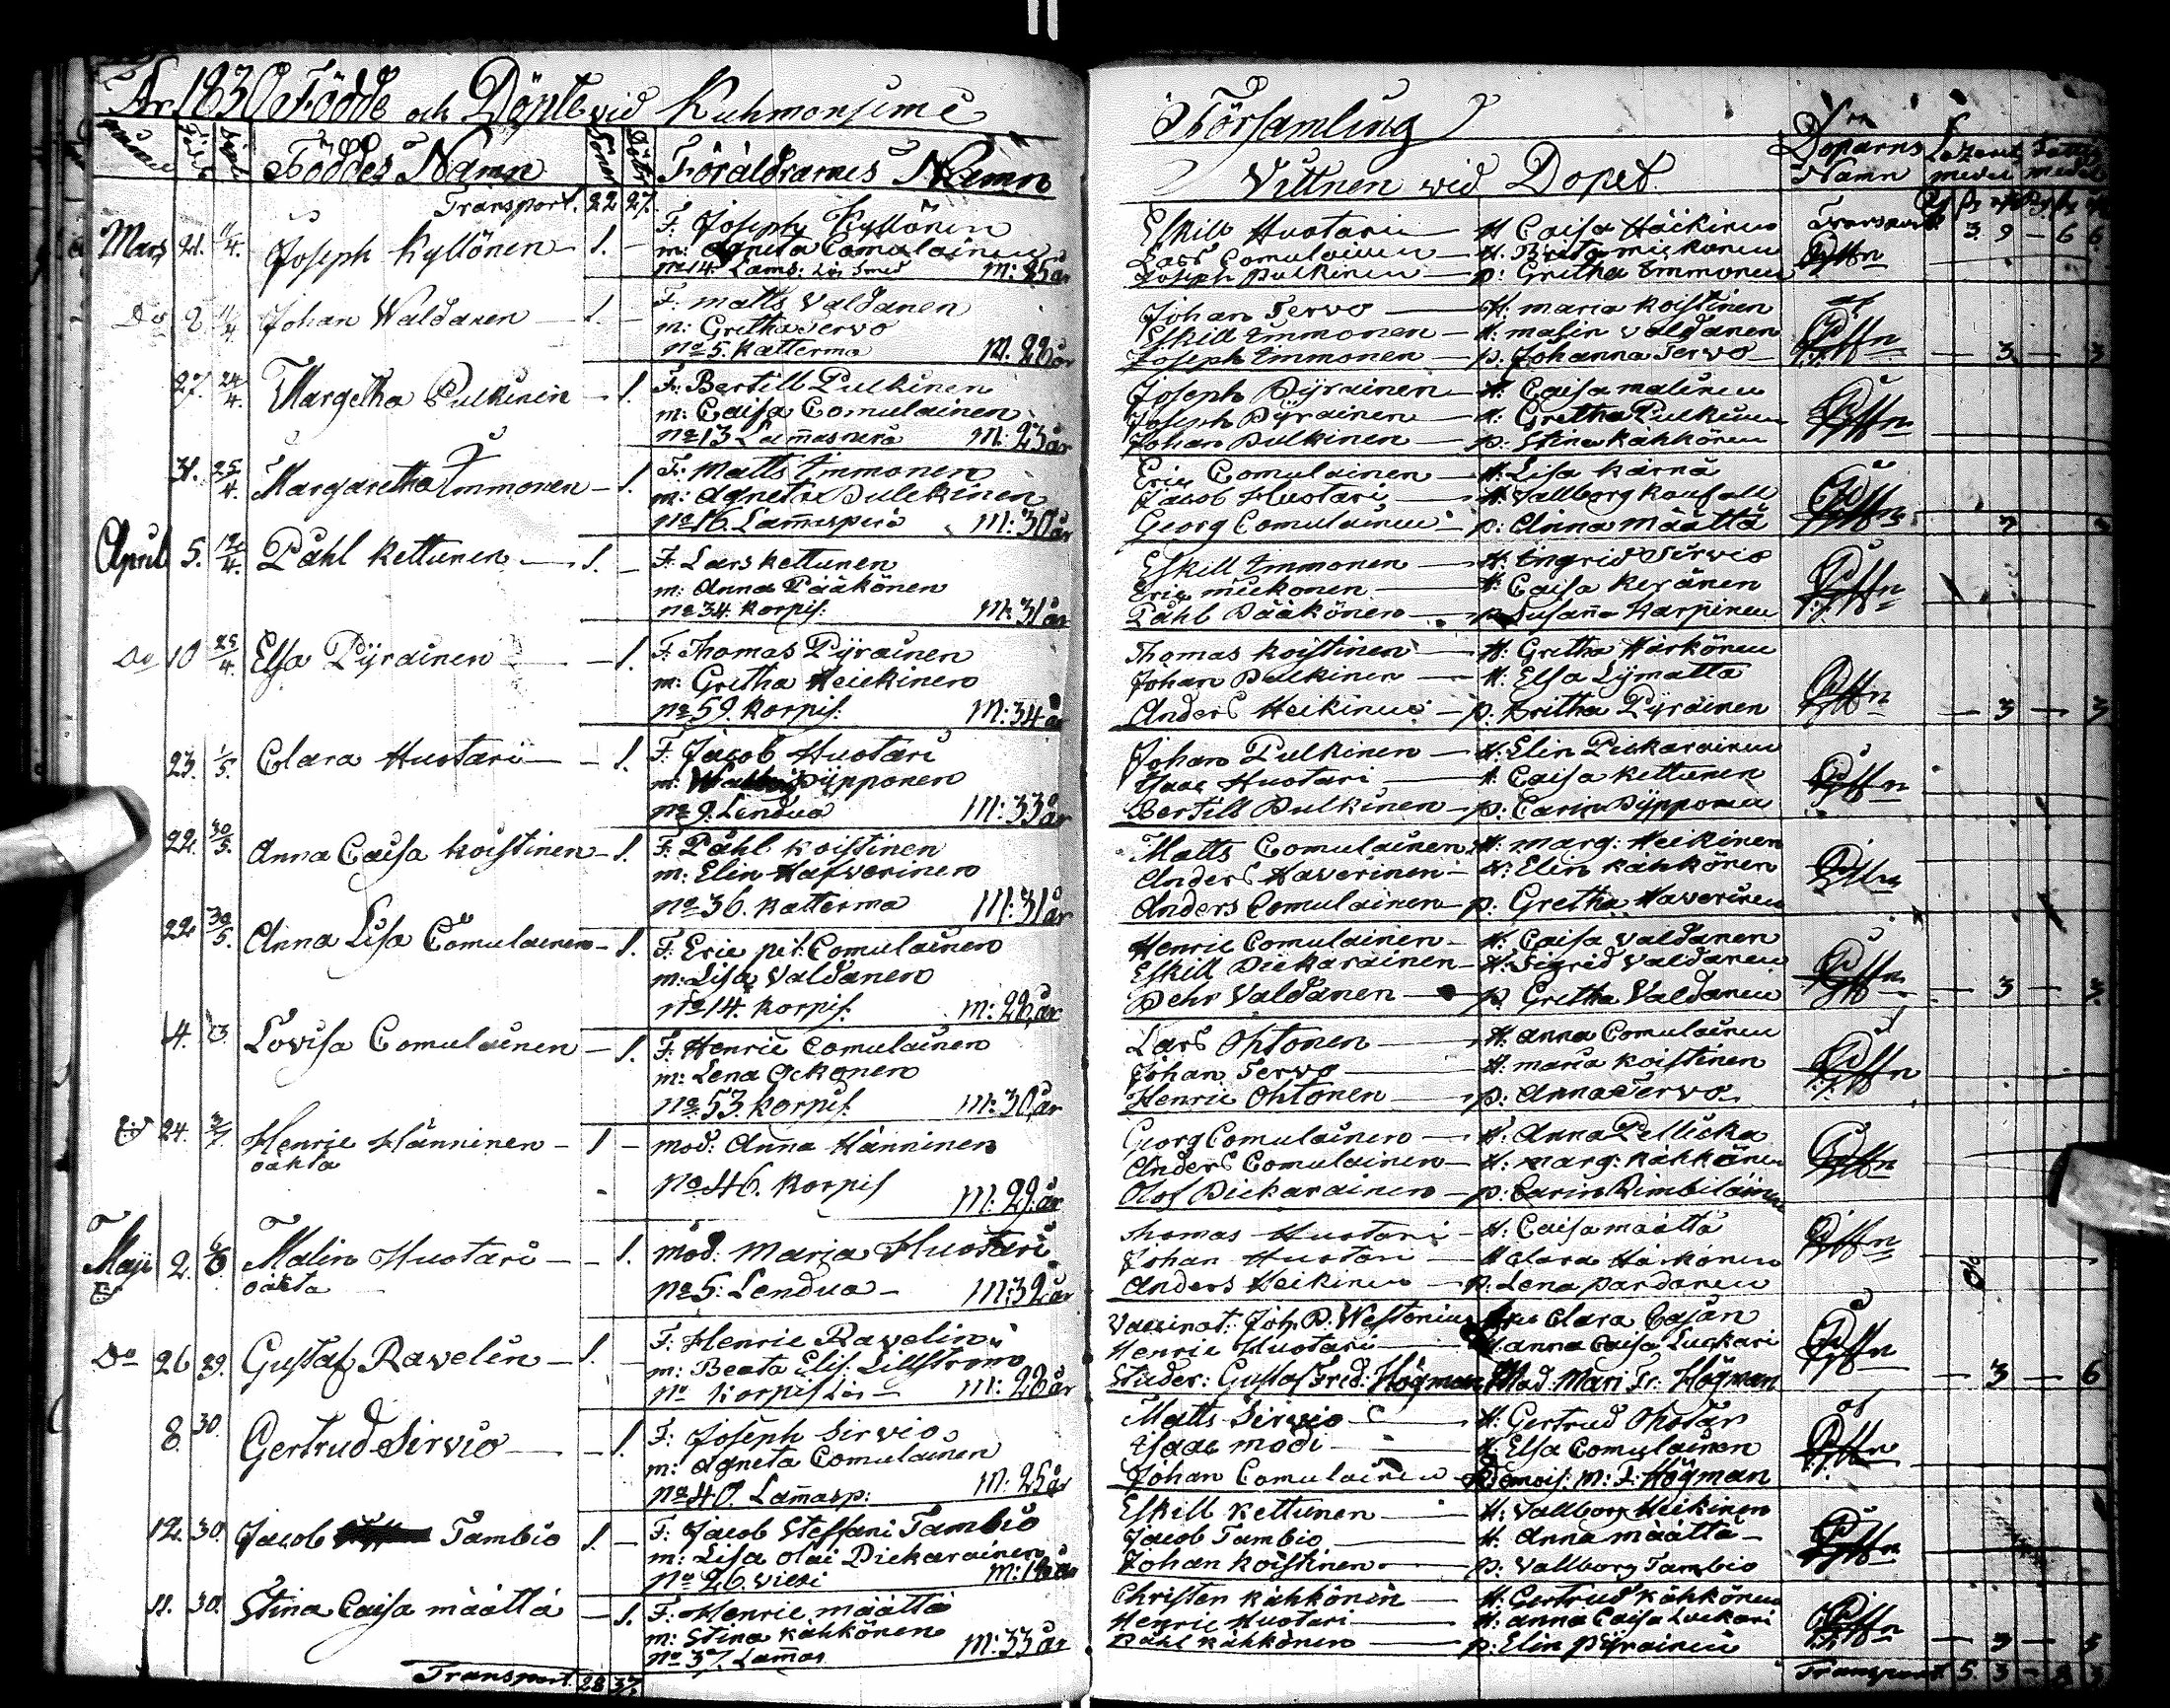 År 1830 Födde och Döpte vid Kuhmoniemi
Födde Döpte Föddes Namn Söner Döttr Föräldrarnes Namn
Transport. 22 27.
Mars 21. 11/4. Joseph Kyllönen 1. — F. Joseph Kyllönen
m: Agneta Comulainen
No 14. Lams: M: 25 år
Do 2 11/4. Johan Waldanen 1. — F. Matts Valdanen
m: Gretha Tervo
No 5. Katterma M. 26 år
27. 24/4. Margetha Pulkinen — 1. F. Bertill Pulkinen
m: Caisa Comulainen
No 13 Lam̄asperä M: 23 år
31. 25/4. Margaretha Immonen — 1. F. Matts Immonen
m: Agneta Pulckinen
No 16. Lam̄asperä M: 30 år
April 5. 12/4. Påhl Kettunen 1. — F. Lars Kettunen
m: Anna Pääkönen
No 34. Korpis: M: 31 år
Do 10 25/4. Elsa Pyrainen — 1. F. Thomas Pyrainen
m: Gretha Heickinen
No 59. Korpis: M: 34 år
23. 1/5. Clara Huotari — 1. F. Jacob Huotari
m: Pypponen
No 9. Lendua M: 33 år
22. 30/5. Anna Caisa Koistinen — 1. F. Påhl Koistinen
m: Elin Hafwerinen
No 36. Katterma M: 31 år
22 30/5. Anna Lisa Comulainen — 1. F. Eric pet: Comulainen
m: Lisa Valdanen
No 14. Korpis: M: 26 år
4. Lovisa Comulainen — 1. F. Henric Comulainen
m: Lena Ockonen
No 53. Korpis: M: 30 år
24. Henric Hänninen 1 — mod: Anna Hänninen
oäkta
No 46. Korpis M: 29 år
Maji 2. Malin Huotari — 1. mod: Maria Huotari
oäkta
No 5. Lendua — M: 32 år
Do 26 29. Gustaf Ravelin — 1. F. Henric Ravelin
m: Beata Elis. Lillström
No Korpis M: 26 år
8. 30. Gertrud Sirvio — 1. F. Joseph Sirvio
m: Agneta Comulainen
No 40. Lam̄asp: M: 25 år
12. 30. Jacob Tambio 1. — F. Jacob Steffani Tambio
m: Lisa Olai Pickarainen
No 26. Viexi
11. 30. Stina Caisa Määttä — 1. F. Henric Määttä
m: Stina Kähkönen
No 37. Lam̄as M: 33 år
Transport. 28 37.
Församling
Vittnen wid Dopet. Döparns Namn Lazarets medel
Eskill Huotari — H Caisa Häikinen Transport 3. 9 — 6 6.
Lars Comulainen — H. Brita Mickonen
Joseph Pulkinen — p: Gretha Immonen
Johan Tervo — H: Maria Koistinen
Eskill Immonen — H: Malin Valdanen
Joseph Immonen — p. Johanna Tervo — 3 — 3
Joseph Pyrainen — H. Caisa Malinen
Joseph Pyrainen — H. Gretha Pulkinen
Johan Pulkinen — p: Stina Kähkönen
Eric Comulainen — H. Lisa Kärnä
Jacob Huotari — H. Vallborg
Georg Comulainen — p: Anna Määttä
Eskill Immonen — H: Ingrid Servio
Eric Mickonen — H: Caisa Keränen
Påhl Pääkönen — p: Susan̄a Karpinen
Thomas Koistinen — H: Gretha Härkönen
Johan Pulckinen — H: Elsa Lymatta
Anders Heikinen — p: Britha Pyräinen — 3 — 3
Johan Pulkinen — H: Elin Pickarainen
Isaac Huotari — H. Caisa Kettunen
Bertill Pulkinen — p: Carin Pypponen
Matts Comulainen H: Marg: Heikinen
Anders Haverinen — H: Elin Kähkönen
Anders Comulainen — p: Gretha Haverinen
Henric Comulainen — H: Caisa Valdanen
Eskill Pickarainen — H: Sigrid Valdanen
Pehr Valdanen — p Gretha Valdanen — 3 — 3.
Lars Ohtonen — H Anna Comulainen
Johan Tervo — H: Maria Koistinen
Henric Ohtonen — p: Anna Tervo
Georg Comulainen — H: Anna Pellicka
Anders Comulainen — H: Marg: Kähkönen
Olof Pickarainen — p: Carin Pimbiläinen
Thomas Huotari — H: Caisa Määttä
Johan Huotari — H Clara Härkönen
Anders Heikinen — p: Lena Pardanen
Vaccinat: Joh. P. Westenius Fru Clara Cajan
Henric Huotari — H. Anna Caisa Luckari
Studer: Gustaf Fred: Högman Mad. Mari Fr. Högman — 3 — 6
Matts Sirvio — H: Gertrud Ohotar
Isaac Modi — H: Elsa Comulainen
Johan Comulainen — Demois: M: F: Högman
Eskill Kettunen — H: Vallborg Heikinen
Jacob Tambio — H. Anna Määttä
Johan Koistinen — p: Vallborg Tambio
Christer Kähkönen — H: Gertrud Kähkönen
Henric Huotari — H: Anna Caisa Luckari
Påhl Kähkönen — p: Elin Pyrainen
Transport 5. 3 — 8 3